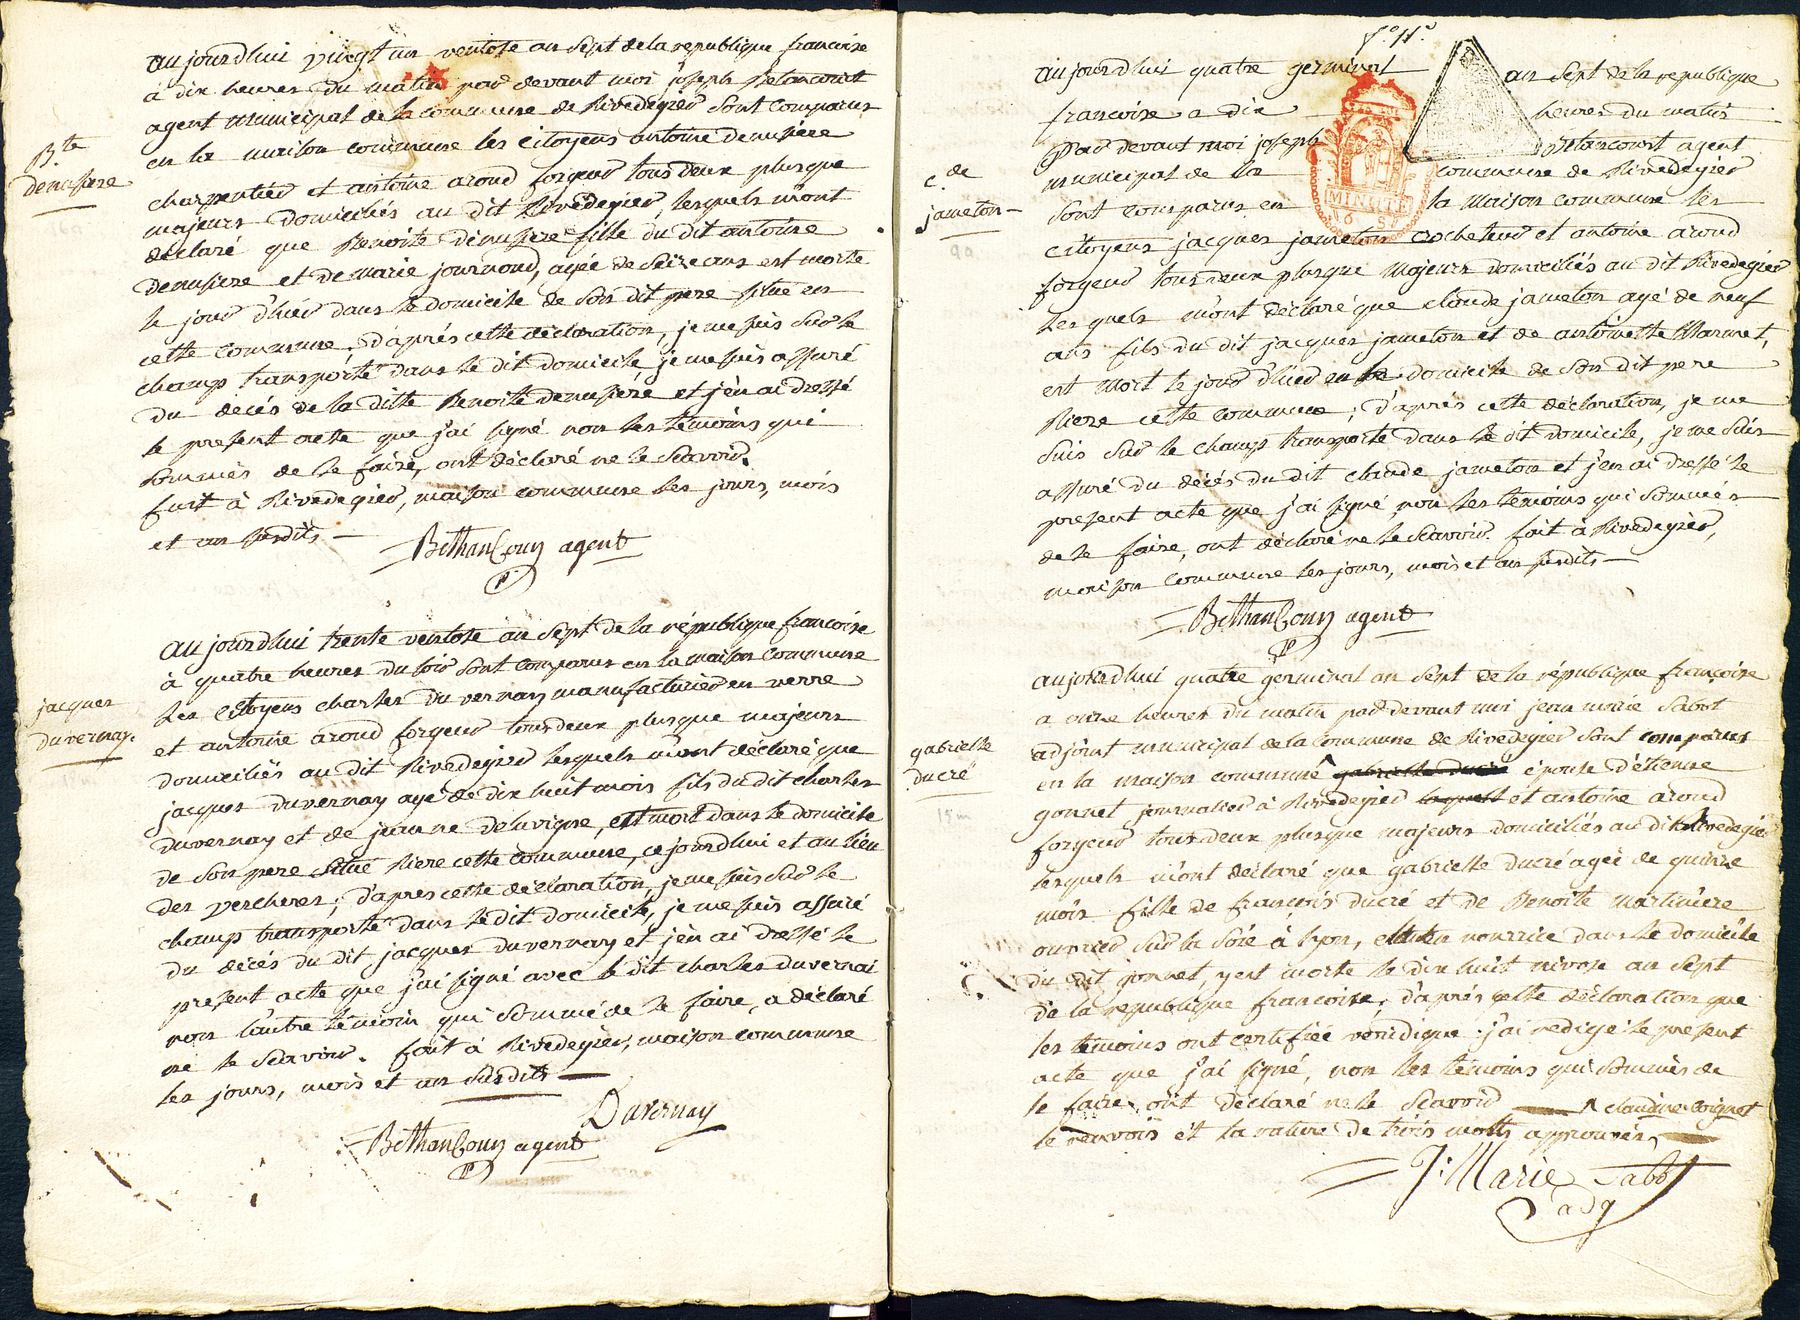 aujourdhui vingt un ventose an sept de la republique francoise
à dix heures du matin par devant moi joseph Betancourt
agent municipal de la commune de Rivedegier sont comparus
en la maison commune les citoyens antoine demusiere
B.te
demusiere
charpentier et antoine aroud forgeur tous deux plusque
majeurs domiciliés au dit Rivedegier, lesquels m'ont
déclaré que Benoite demusiere fille du dit antoine
demusiere et de marie journoud, agée de seize ans est morte
le jour d'hier dans le domicile de son dit pere situé en
cette commune, d'après cette déclaration, je me suis sur le
champ transporté dans le dit domicile je me suis assuré
du décés de la ditte Benoite demusiere et j'en ai dressé
le present acte que j'ai signé non les témoins qui
sommés de le faire, ont déclaré ne le scavoir.
fait à Rivedegier, maison commune les jours, mois
et an susdits
BethanCourt agent
jacques
duvernay
aujourdhui trente ventose an sept de la république francoise
à quatre heures du soir sont comparus en la maison commune
les citoyens charles duvernay manufacturier en verre
et antoine aroud forgeur tous deux plusque majeurs
domiciliés au dit Rivedegier lesquels m'ont déclaré que
jacques duvernay agé de dix huit mois fils du dit charles
duvernay et de jeanne delavigne, est mort dans le domicile
de son pere situé riere cette commune, ce jourdhui et au lieu
des vercheres; d'apres cette déclaration, je me suis sur le
champ transporté dans le dit domicile, je me suis assuré
du décés du dit jacques duvernay et j'en ai dressé le
present acte que j'ai signé avec le dit charles duvernai
non l'autre témoin qui sommé de le faire, a déclaré
ne le scavoir. fait à Rivedegier, maison commune
les jours, mois et an susdits
Duvernay
BethanCourt agent
f.o 11.o
aujourdhui quatre germinal an sept de la republique
francoise a dix heures du matin
par devant moi joseph Betancourt agent
municipal de la commune de Rivedegier
c.de
jameton
90
MINUTE
sont comparus en la maison commune les
citoyens jacques jameton crocheteur et antoine aroud
forgeur tous deux plusque majeurs domiciliés au dit Rivedegier
lesquels m'ont déclaré que claude jameton agé de neuf
ans fils du dit jacques jameton et de antoinette Marinet,
est mort le jour d'hier en le domicile de son dit pere
Riere cette commune; d'après cette déclaration, je me
suis sur le champ transporté dans le dit domicile, je me suis
assuré du décés du dit claude jameton et j'en ai dressé le
present acte que j'ai signé non les témoins qui sommés
de le faire, ont déclaré ne le scavoir. fait à Rivedegier,
maison commune les jours, mois et an susdits
BethanCourt agent
gabrielle
ducré
15 m
aujourdhui quatre germinal an sept de la république françoise
a onze heures du matin par devant moi jean marie Sabot
adjoint municipal de la commune de Rivedegier sont comparus
en la maison commune ^ gabrielle ducré épouse d'étienne
gonnet journalier à Rivedegier laquelle et antoine aroud
forgeur tous deux plusque majeurs domiciliés au dit Rivedegier
lesquels m'ont déclaré que gabrielle ducré agée de quinze
mois fille de françois ducré et de Benoite martiniere
ouvrier sur la soie à lyon, étant en nourrice dans le domicile
du dit gonnet, y est morte le dix huit nivose an sept
de la republique francoise; d'après cette déclaration que
les témoins ont certifiée veridique j'ai redigé le present
acte que j'ai signé, non les témoins qui sommés de
le faire ont déclaré ne le scavoir ^ claudine coignet
le renvois et la rature de trois mots approuvés
J: Marie Sabot
adj